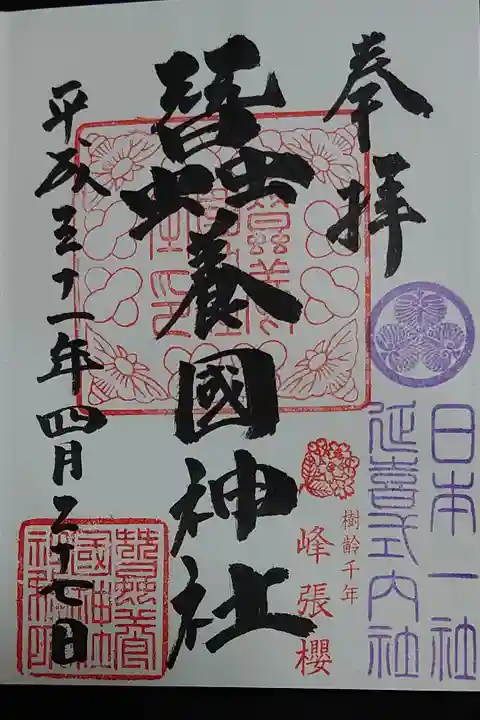 奉拝
日本一社
延喜式内社
樹齢千年
峰張櫻
蠶養國神社
平成三十一年四月二十七日